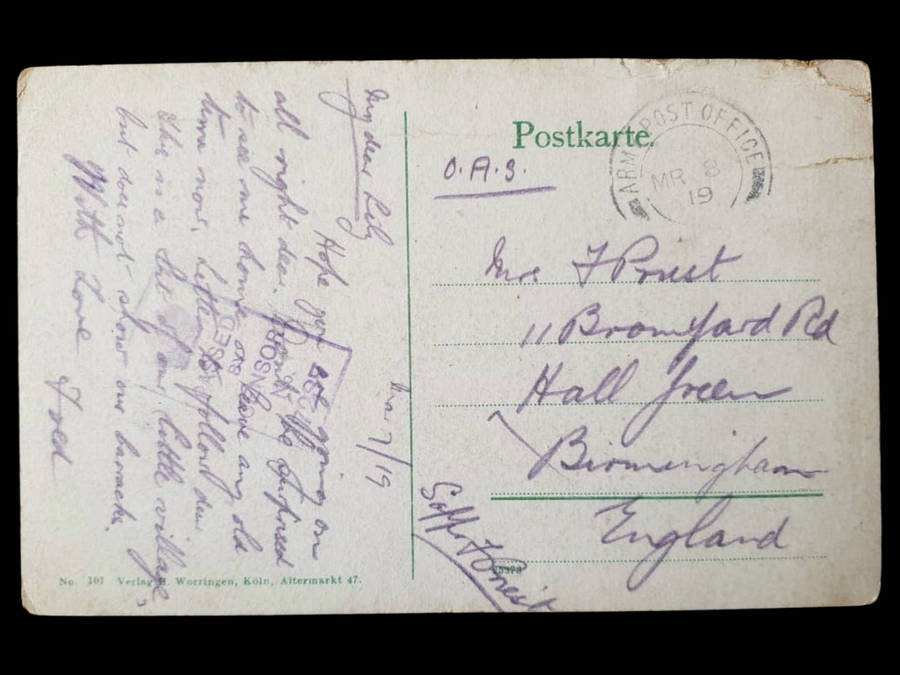 My dear Lily
Mar 7/19
Hope you are going on
all right dear. Don't be surprised
to see me home on leave any old
time now. Letter to follow dear
This is a bit of our little village,
but does not show our barracks.
With Love Fred
Postkarte
O.A.S.
ARMY POST OFFICE
MR 8
19
Mrs F Priest
11 Bromyard Rd
Hall Green
Birmingham
England
Sappr F Priest
No. 101 Verlag H. Worringen, Köln, Altermarkt 47.